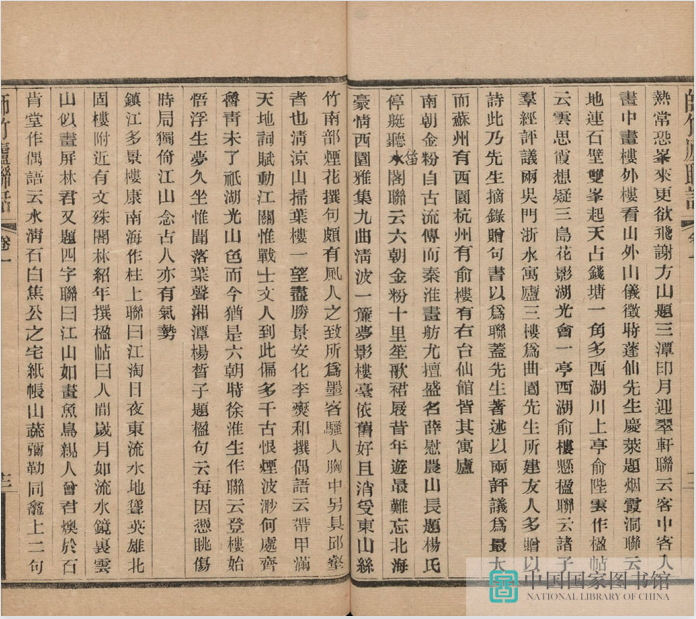 熱常恐峯來更欲飛謝方山題三潭印月迎翠軒聯云客中客入
畫中畫樓外樓看山外山儀徵時蓬仙先生慶萊題烟霞洞聯云
地連石壁雙峯起天占錢塘一角多西湖川上亭俞陛雲作楹帖
云雲思霞想疑三島花影湖光會一亭西湖俞樓懸楹聯云諸子
羣經評議兩吳門浙水寓廬三樓爲曲園先生所建友人多贈以
詩此乃先生摘錄贈句書以爲聯蓋先生著述以兩評議爲最大
而蘇州有西園杭州有俞樓有右台仙館皆其寓廬
南朝金粉自古流傳而秦淮畫舫尤擅盛名薛慰農山長題楊氏
停艇聽水閣聯云六朝金粉十里笙歌裙屐昔年遊最難忘北海
豪情西園雅集九曲淸波一簾夢影樓臺依舊好且消受東山絲
竹南部煙花撰句頗有風人之致所爲墨客騷人胸中另具邱壑
者也淸涼山掃葉樓一望盡勝景安化李燮和撰偶語云帶甲滿
天地詞賦動江關惟戰士文人到此偏多千古恨煙波渺何處齊
魯靑未了祇湖光山色而今猶是六朝時徐淮生作聯云登樓始
悟浮生夢久坐惟聞落葉聲湘潭楊晳子題楹句云每因憑眺傷
時局獨倚江山念古人亦有氣勢
鎮江多景樓康南海作柱上聯曰江淘日夜東流水地聳英雄北
固樓附近有文殊閣林紹年撰楹帖曰人間歲月如流水鏡裏雲
山似畫屛林君又題四字聯曰江山如畫魚鳥親人曾君煥於石
肯堂作偶語云水淸石白焦公之宅紙帳山蔬彌勒同龕上二句
師竹廬聯話
卷一
中国国家图书馆
NATIONAL LIBRARY OF CHINA